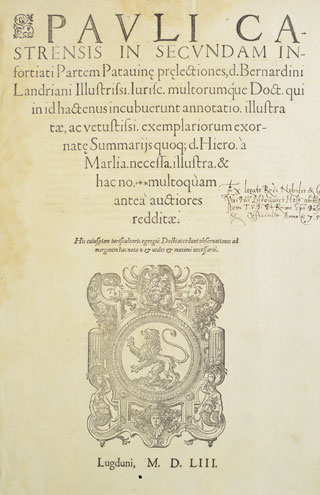 PAVLI CA-
STRENSIS IN SECVNDAM IN-
fortiati Partem Patauinę pręlectiones, d. Bernardini
Landriani Illustrissi. Iurisc. multorumque Doct. qui
in id hactenus incubuerunt annotatio. illustra
tæ, ac vetustissi. exemplariorum exor-
natę Summarijs quoq; d. Hiero. à
Marlia. necessa. illustra. &
hac no. multoquàm
anteà auctiores
redditæ.
His eiusdem iurisconsultoris egregii Docti accedunt obseruationes ad
marginem hac nota & vtiles & maximè necessarię.
Lugduni, M. D. LIII.